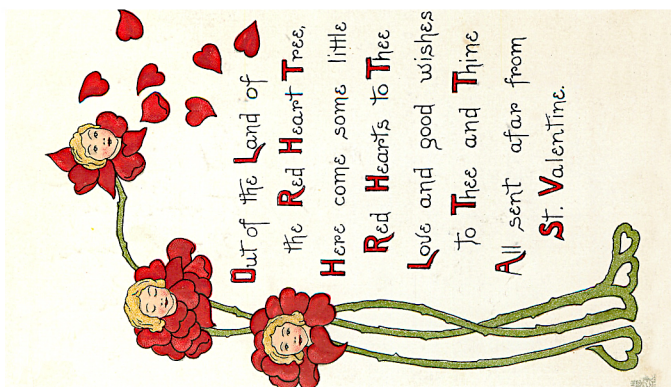 Out of the Land of
the Red Heart Tree,
Here come some little
Red Hearts to Thee
Love and good wishes
To Thee and Thine
All sent afar from
St. Valentine.